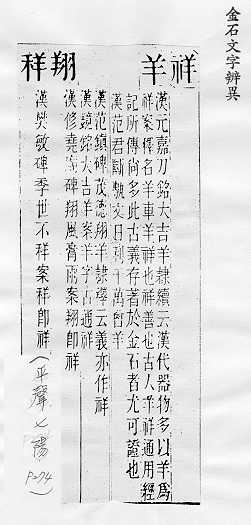 金石文字辨異
祥 羊
漢元嘉刀銘大吉羊隸續云漢代器物多以羊爲
祥案釋名羊車羊祥也祥善也古人羊祥通用經
記所傳尚多此古義存著於金石者尤可證也
漢范君闕
漢范鎮碑茂德翔羊隸釋云義亦作祥
漢鏡銘大吉羊案羊字古通祥
翔
漢修堯廟碑翔風膏雨案翔即祥
祥
漢樊敏碑季世不祥案祥即祥
(平聲七陽
P.74)